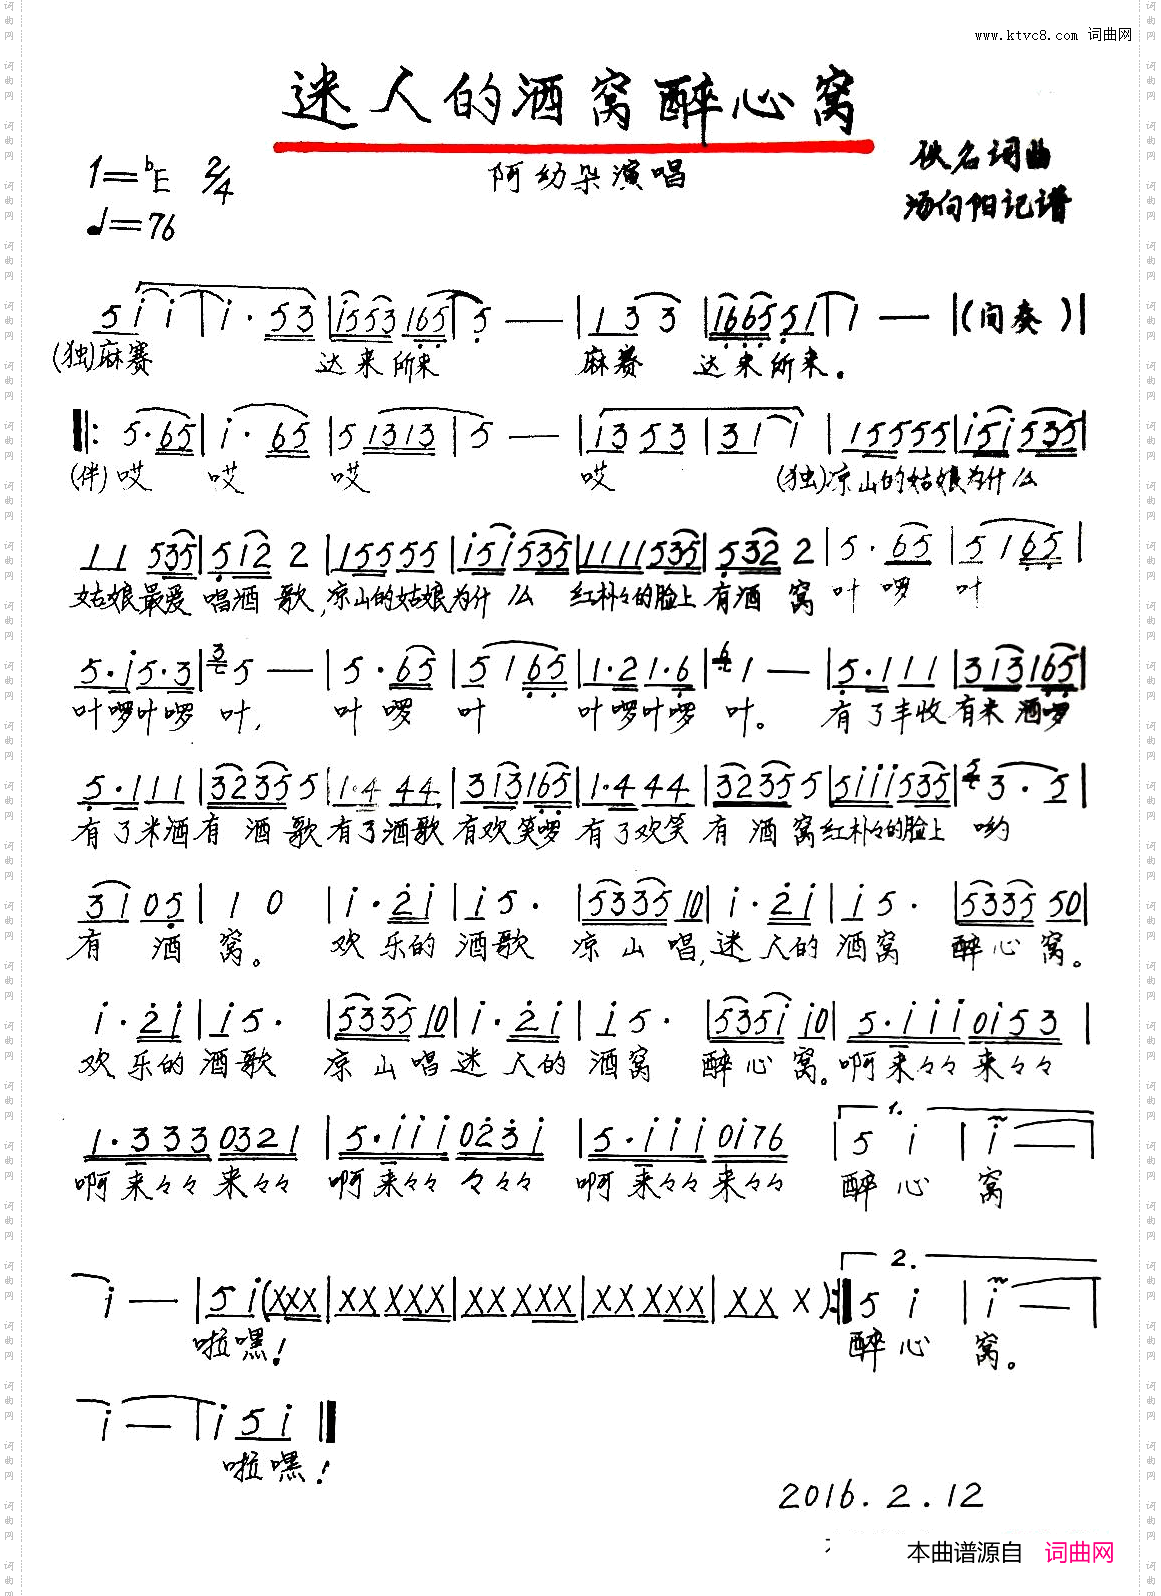 www.ktvc8.com 词曲网
迷人的酒窝醉心窝
1=♭E 2/4 阿幼朵演唱 佚名词曲
♩=76 汤向阳记谱
5 i i | i · 5 3 | i 5 5 3 1 6 5 | 5 — | 1 3 3 | 1 6 6 5 5 1 | 1 — | (间奏) |
(独)麻赛 达来所来 麻赛 达来所来。
‖: 5 · 6 5 | i · 6 5 | 5 1 3 1 3 | 5 — | 1 3 5 3 | 3 1 1 | 1 5 5 5 5 5 | i 5 i 5 3 5 |
(伴)哎 哎 哎 哎 (独)凉山的姑娘为什么
1 1 5 3 5 | 5 i 2 2 | 1 5 5 5 5 5 | i 5 i 5 3 5 | 1 1 1 1 5 3 5 | 5 3 2 2 | 5 · 6 5 | 5 1 6 5 |
姑娘最爱 唱酒歌,凉山的姑娘为什么 红朴々的脸上有酒窝 叶啰 叶
5 · i 5 · 3 | 3 5 — | 5 · 6 5 | 5 1 6 5 | 1 · 2 1 · 6 | 6 1 — | 5 · 1 1 1 | 3 1 3 1 6 5 |
叶啰叶啰 叶, 叶啰 叶 叶啰叶啰 叶。 有了丰收有米酒啰
5 · 1 1 1 | 3 2 3 5 5 | 1 · 4 4 4 | 3 1 3 1 6 5 | 1 · 4 4 4 | 3 2 3 5 5 | 5 i i i 5 3 5 | 5 3 · 5 |
有了米酒有酒歌有了酒歌有欢笑啰 有了欢笑 有酒窝红朴々的脸上 哟
3 1 0 5 | 1 0 | i · 2 i | i 5 · | 5 3 3 5 1 0 | i · 2 i | i 5 · | 5 3 3 5 5 0 |
有酒窝。 欢乐的酒歌 凉山唱,迷人的酒窝 醉心窝。
i · 2 i | i 5 · | 5 3 3 5 1 0 | i · 2 i | i 5 · | 5 3 5 i i 0 | 5 · i i i 0 i 5 3 |
欢乐的酒歌 凉山唱迷人的酒窝 醉心窝。啊来々々来々々
1 · 3 3 3 0 3 2 1 | 5 · i i i 0 2 3 i | 5 · i i i 0 i 7 6 | 1. 5 i | i — |
啊来々々来々々 啊来々々 々々々 啊来々々来々々 醉心窝
i — | 5 i (X X X | X X X X X | X X X X X | X X X X X | X X X ) :‖ 2. 5 i | i — |
啦嘿! 醉心窝。
i — | i 5 i ‖
啦嘿!
2016.2.12
本曲谱源自 词曲网